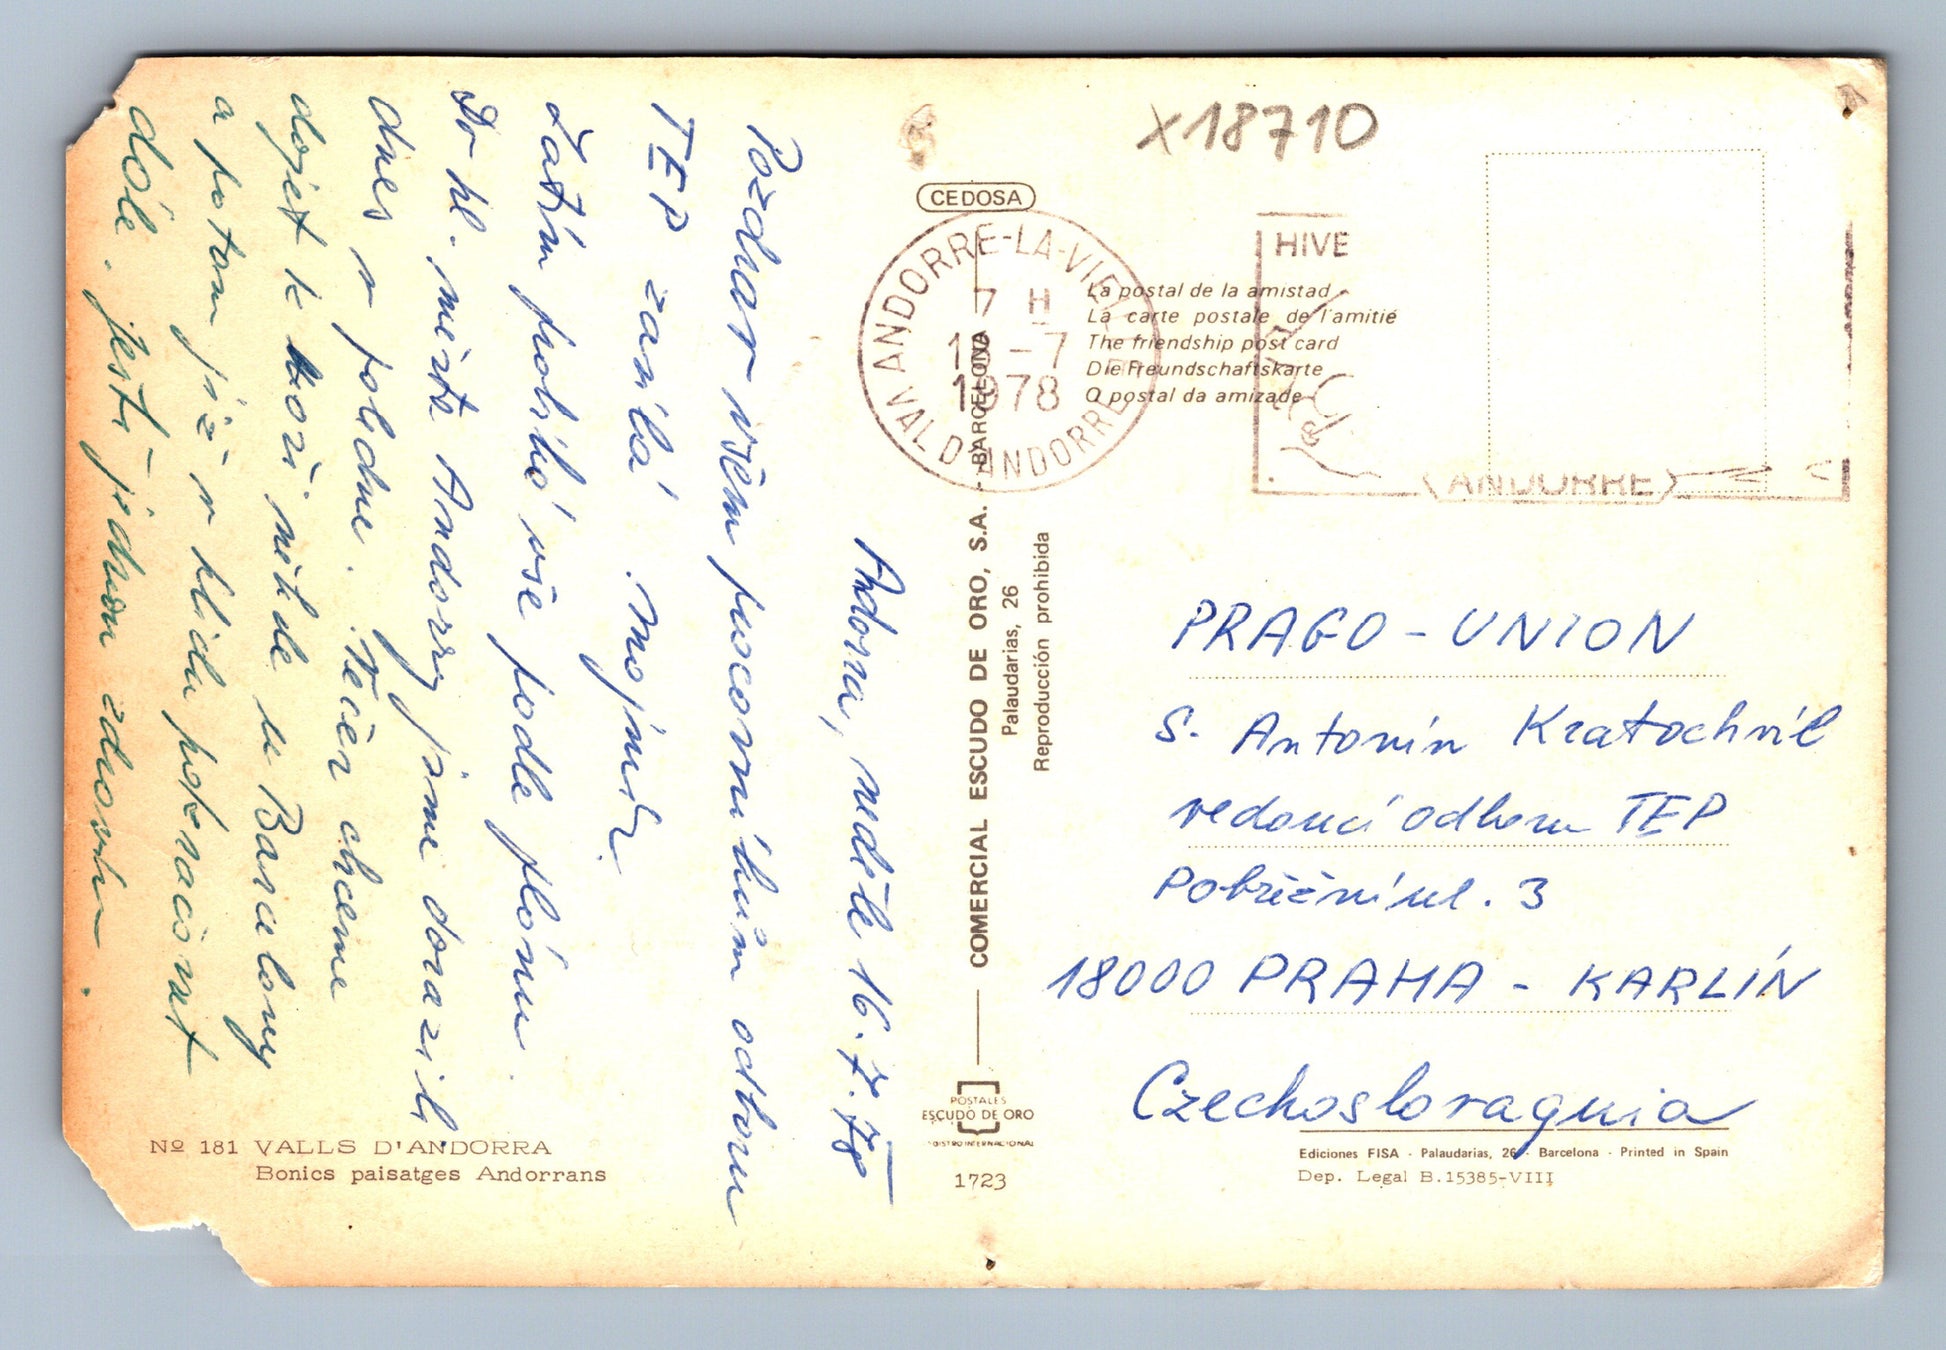 Andorra, neděle 16.7.78
Pozdrav všem pracovníkům odboru
TEP zasílá
Zatím probíhá vše podle plánu.
Do hl. města Andorry jsme dorazili
dnes v poledne. Večer chceme
dojet k moři někde u Barcelony
a potom již v klidu pokračovat
dále. Ještě jednou zdravím.
X18710
CEDOSA
HIVE
ANDORRE-LA-VIEILLE
7 H
-7
1978
VAL D'ANDORRE
(ANDORRE)
La postal de la amistad
La carte postale de l'amitié
The friendship post card
Die Freundschaftskarte
O postal da amizade
COMERCIAL ESCUDO DE ORO, S.A. - BARCELONA
Palaudarias, 26
Reproducción prohibida
PRAGO-UNION
S. Antonín Kratochvíl
vedoucí odboru TEP
Pobřežní ul. 3
18000 PRAHA - KARLÍN
Czechoslovaquia
POSTALES
ESCUDO DE ORO
1723
Nº 181 VALLS D'ANDORRA
Bonics paisatges Andorrans
Ediciones FISA - Palaudarias, 26 - Barcelona - Printed in Spain
Dep. Legal B.15385-VIII